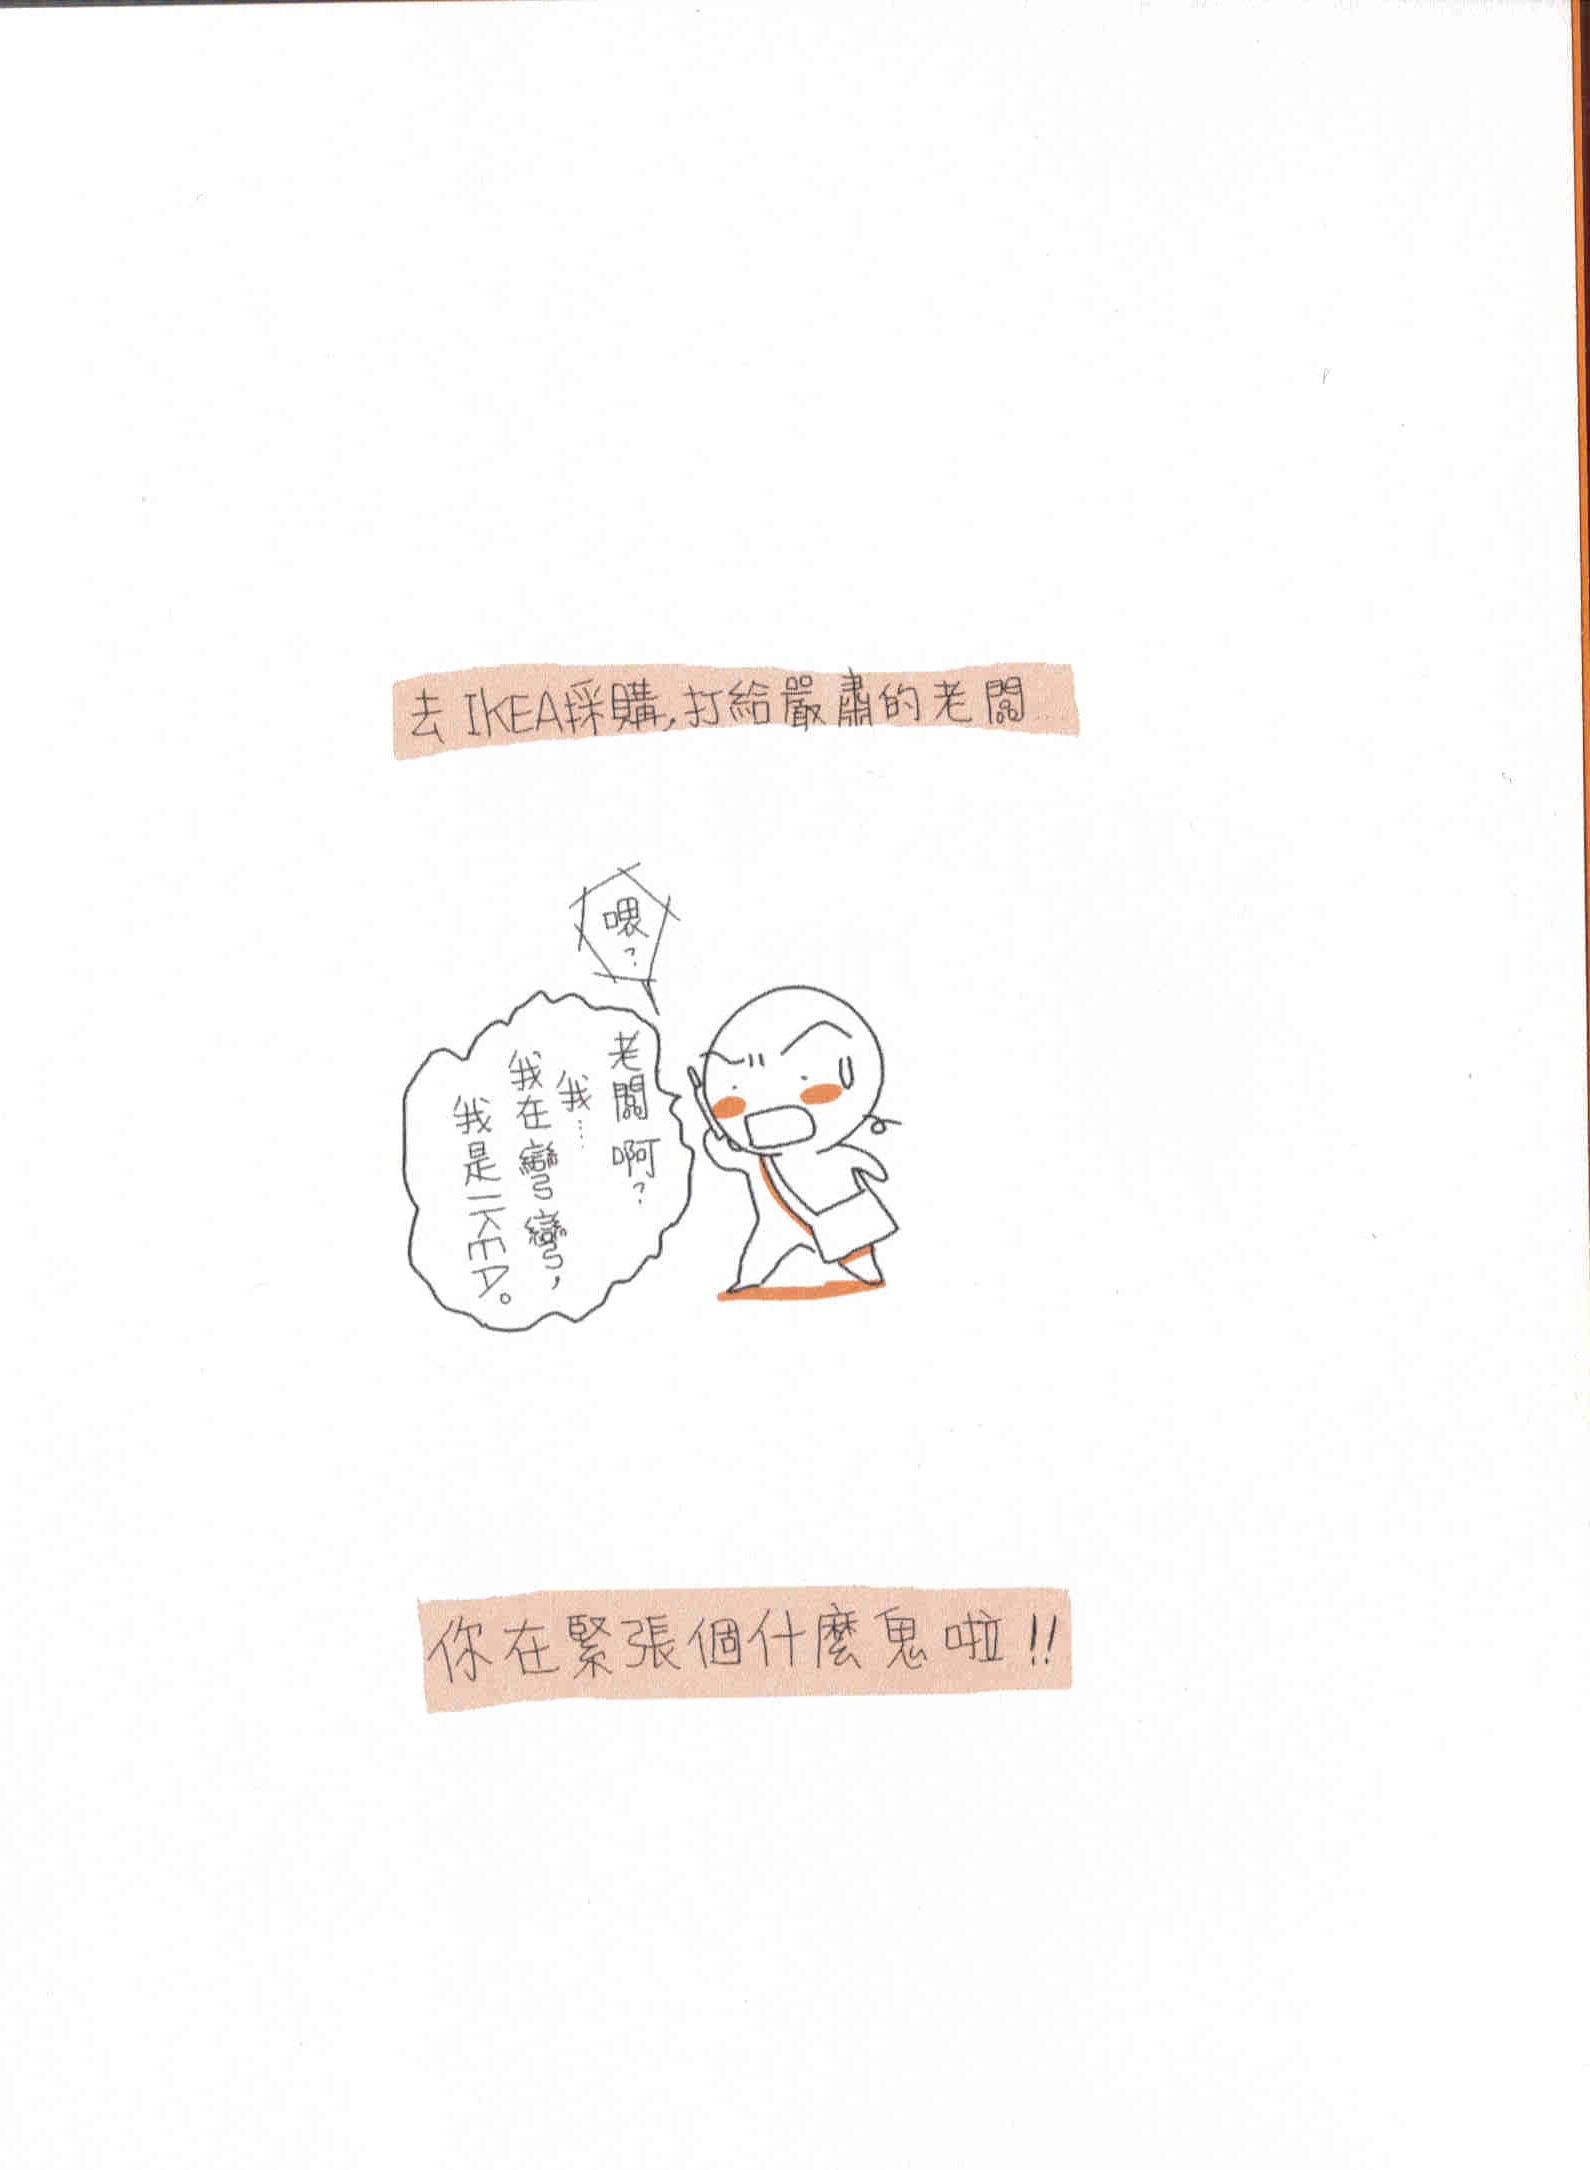 去IKEA採購,打給嚴肅的老闆...
喂?
老闆啊?
我...
我在彎彎,
我是IKEA。
你在緊張個什麼鬼啦!!